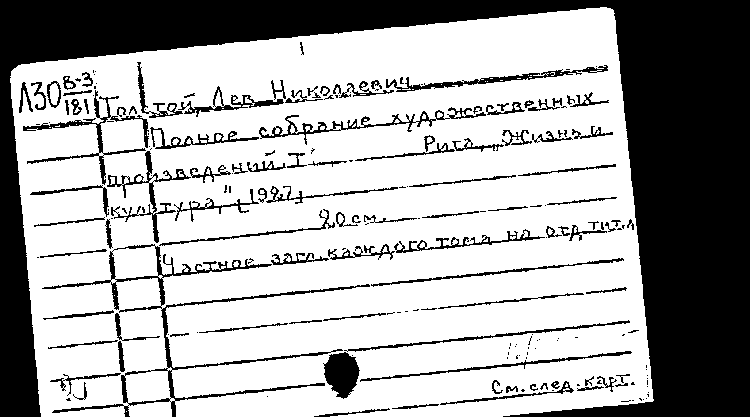 Л30 В-3/181 Толстой, Лев Николаевич
Полное собрание художественных
произведений. I Рига, „Жизнь и
культура," [1927,
20 см.
Частное загл. каждого тома на отд. тит. л
См. след. карт.